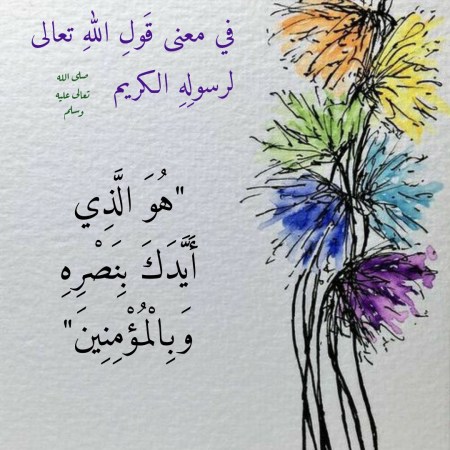 في معنى قَولِ اللهِ تعالى
لرسولِهِ الكريم
صلى الله
تعالى عليه
وسلم
"هُوَ الَّذِي
أَيَّدَكَ بِنَصْرِهِ
وَبِالْمُؤْمِنِينَ"